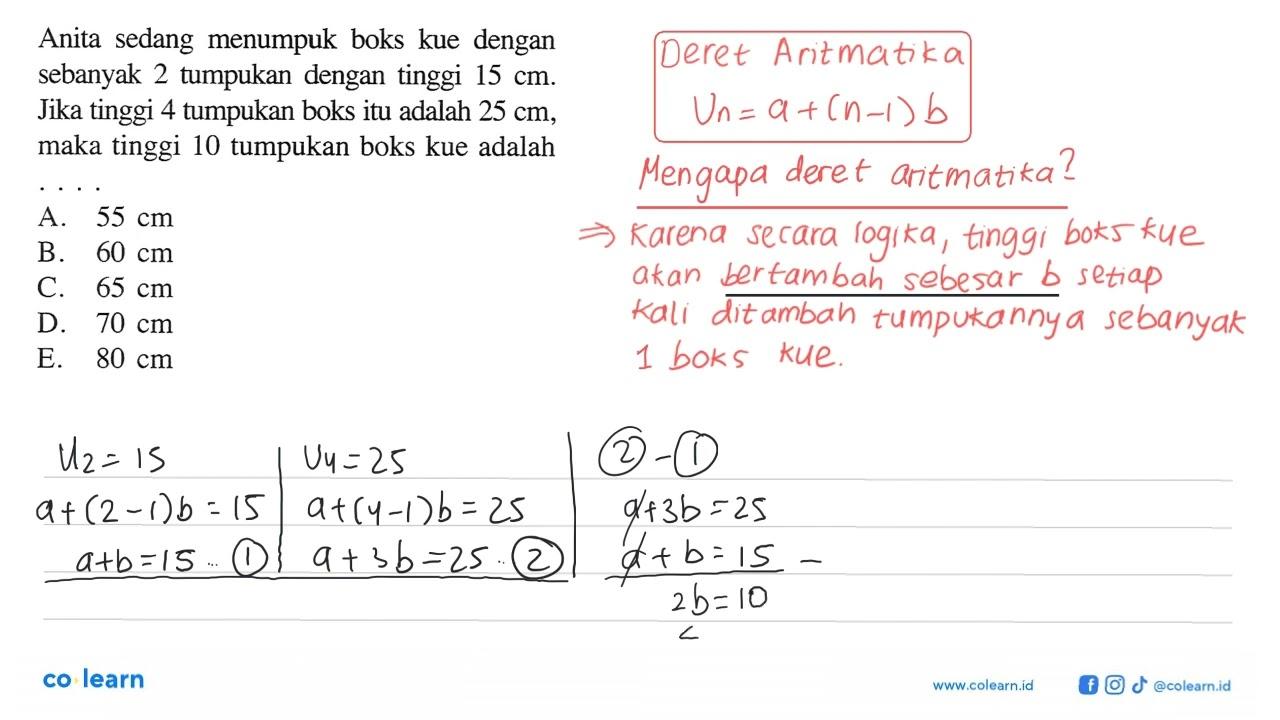 Anita sedang menumpuk boks kue dengan
sebanyak 2 tumpukan dengan tinggi 15 cm.
Jika tinggi 4 tumpukan boks itu adalah 25 cm,
maka tinggi 10 tumpukan boks kue adalah
. . . .
A. 55 cm
B. 60 cm
C. 65 cm
D. 70 cm
E. 80 cm
Deret Aritmatika
Un = a + (n-1) b
Mengapa deret aritmatika?
⇒ Karena secara logika, tinggi boks kue
akan bertambah sebesar b setiap
kali ditambah tumpukannya sebanyak
1 boks kue.
U2 = 15
a+(2-1)b = 15
a+b = 15 ... ①
U4 = 25
a+(4-1)b = 25
a + 3b = 25 .. ②
② - ①
a+3b = 25
a + b = 15 -
2b = 10
co learn
www.colearn.id
@colearn.id